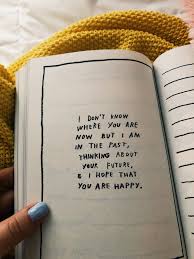 I DON'T KNOW
WHERE YOU ARE
NOW BUT I AM
IN THE PAST,
THINKING ABOUT
YOUR FUTURE,
& I HOPE THAT
YOU ARE HAPPY.